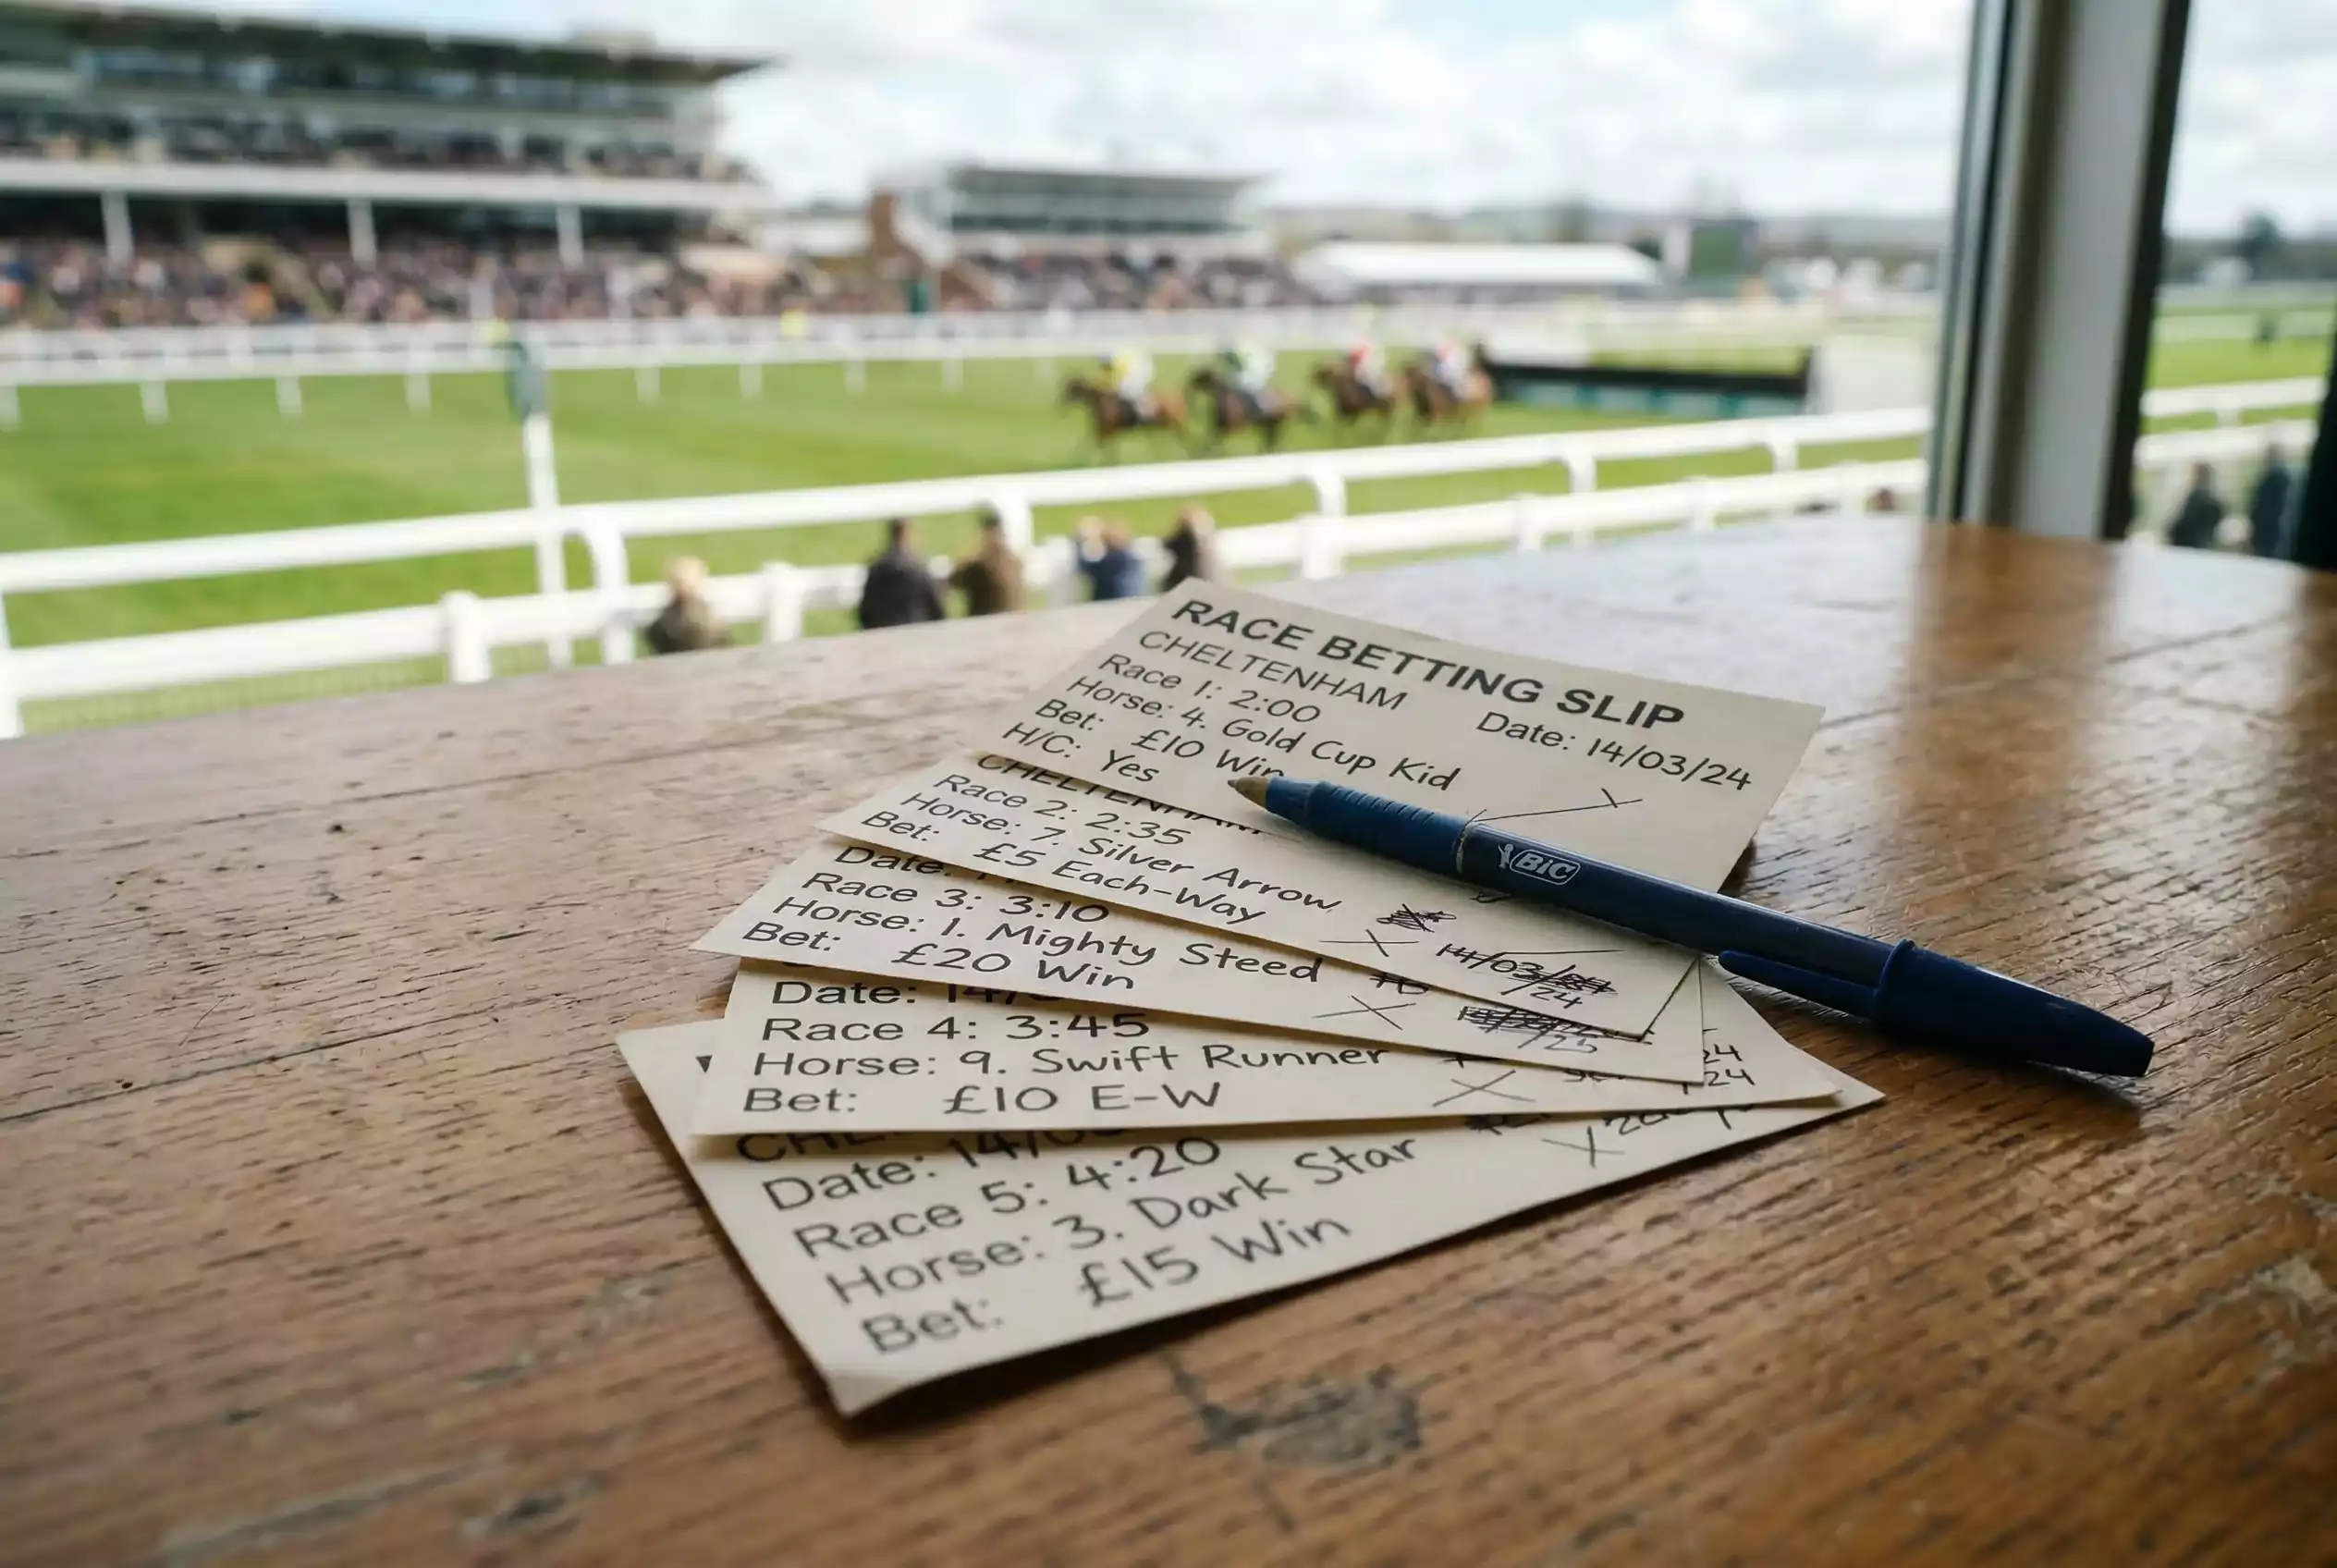 RACE BETTING SLIP
CHELTENHAM
Date: 14/03/24
Race 1: 2:00
Horse: 4. Gold Cup Kid
Bet: £10 Win
H/C: Yes
BiC
CHELTENHAM
Race 2: 2:35
Horse: 7. Silver Arrow
Bet: £5 Each-Way
14/03/
24
Date:
Race 3: 3:10
Horse: 1. Mighty Steed
Bet: £20 Win
/25
Date: 14/
Race 4: 3:45
Horse: 9. Swift Runner
Bet: £10 E-W
24
24
Date: 14/0
Race 5: 4:20
Horse: 3. Dark Star
Bet: £15 Win